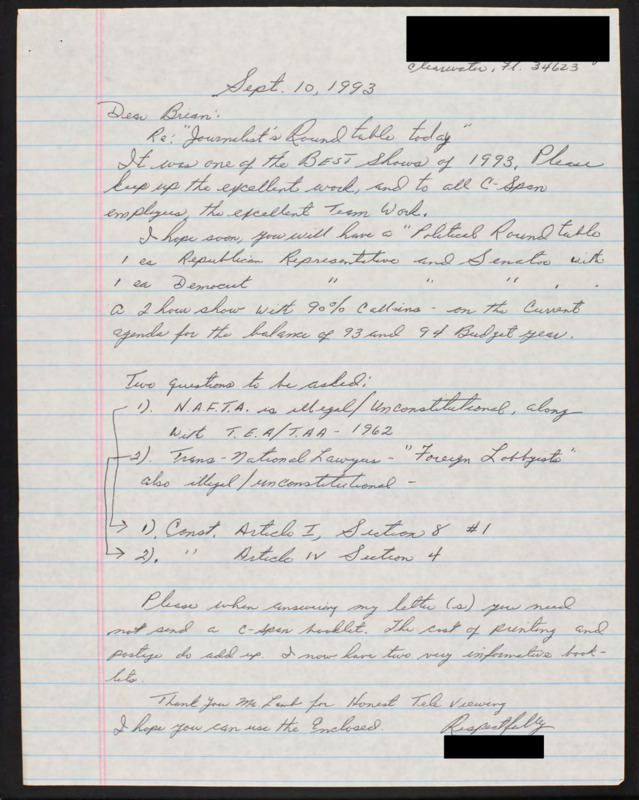 Clearwater, Fl. 34623
Sept. 10, 1993
Dear Brian:
Re: "Journalist's Round table today"
It was one of the BEST Shows of 1993. Please
keep up the excellent work, and to all C-Span
employees, the excellent Team Work.
I hope soon, you will have a "Political Round table
1 ea Republican Representative and Senator with
1 ea Democrat " " " , .
a 2 hour show with 90% Call-ins - on the Current
agenda for the balance of 93 and 94 Budget year.
Two questions to be asked:
1). N.A.F.T.A. is illegal/Unconstitutional, along
with T.E.A/T.A.A - 1962
2). Trans-National Lawyers - "Foreign Lobbyists"
also illegal/unconstitutional -
1). Const. Article I, Section 8 #1
2). " Article IV Section 4
Please when answering my letter (s) you need
not send a C-Span booklet. The cost of printing and
postage do add up. I now have two very informative book-
lets.
Thank You Mr Lamb for Honest Tele Viewing
I hope you can use the Enclosed. Respectfully